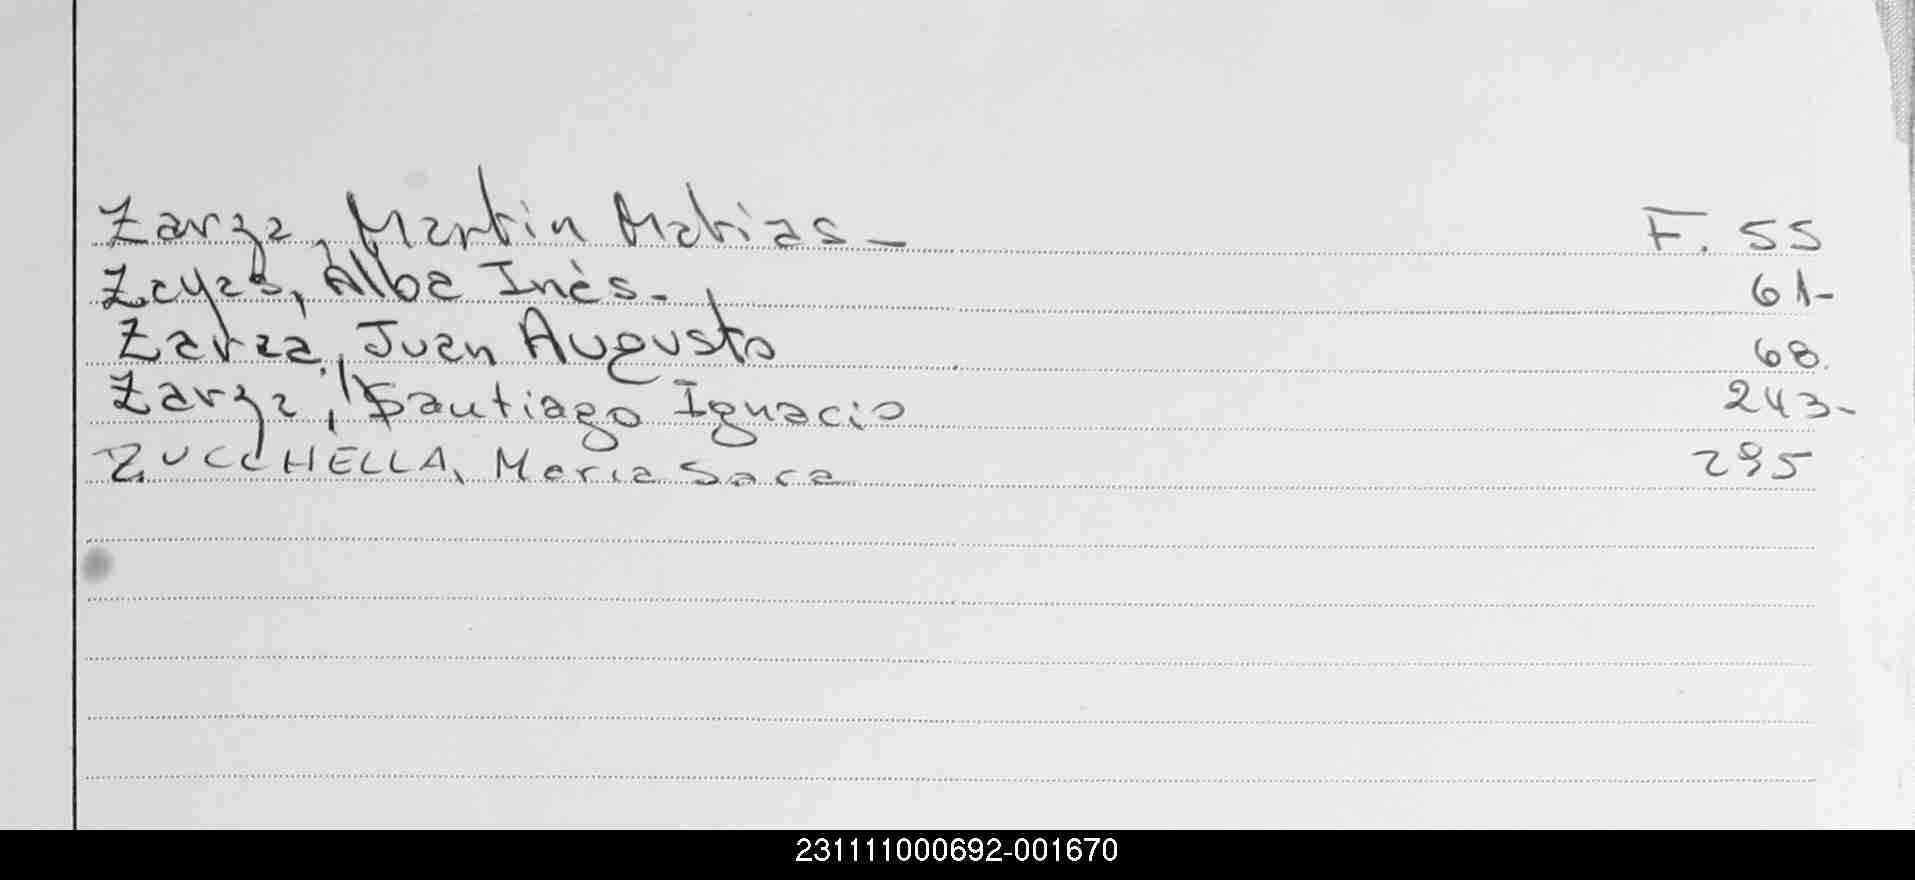 Zarza, Martin Matias - F. 55
Zayas, Alba Inés. 61-
Zarza, Juan Augusto 68.
Zarza, Santiago Ignacio 243-
ZUCCHELLA, Maria Sara 295
231111000692-001670